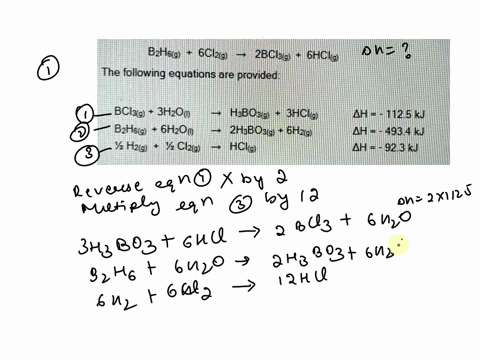 ① B₂H₆(g) + 6Cl₂(g) → 2BCl₃(g) + 6HCl(g) Δn = ?
The following equations are provided:
① BCl₃(g) + 3H₂O(l) → H₃BO₃(g) + 3HCl(g) ΔH = - 112.5 kJ
② B₂H₆(g) + 6H₂O(l) → 2H₃BO₃(g) + 6H₂(g) ΔH = - 493.4 kJ
③ ½ H₂(g) + ½ Cl₂(g) → HCl(g) ΔH = - 92.3 kJ
Reverse eqn ① X by 2
Multiply eqn ③ by 12
Δn = 2×112.5
3H₃BO₃ + 6HCl → 2 BCl₃ + 6H₂O
B₂H₆ + 6H₂O → 2H₃BO₃ + 6H₂
6H₂ + 6Cl₂ → 12HCl